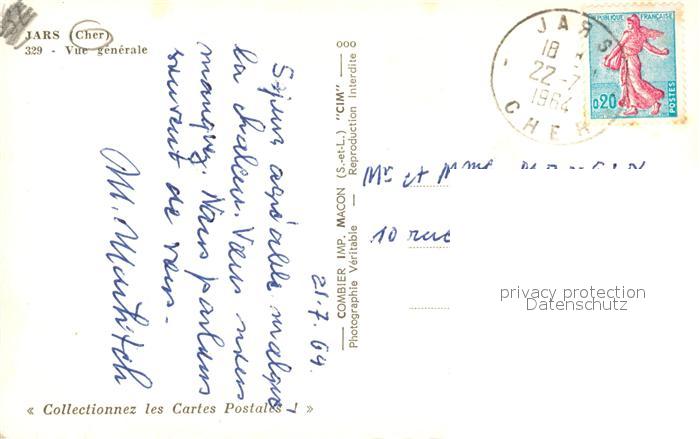 JARS (Cher)
329 - Vue générale
21.7.64.
Séjour agréable malgré
la chaleur. Vous nous
manquez. Nous parlons
souvent de vous.
M.
« Collectionnez les Cartes Postales ! »
COMBIER IMP. MACON (S.-et-L.) "CIM"
Photographie Véritable — Reproduction Interdite
JARS
18
22-7
1964
CHER
REPUBLIQUE FRANÇAISE
0,20
POSTES
Mr et Mme
10 rue
privacy protection
Datenschutz